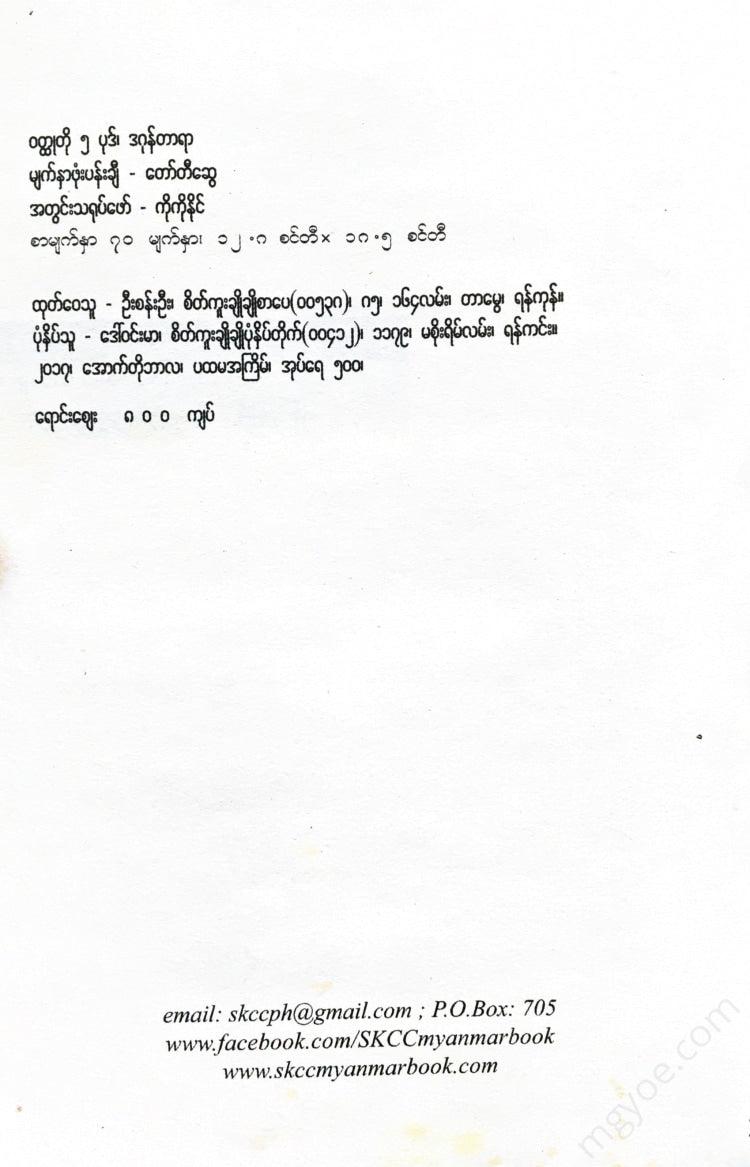 ဝတ္ထုတို ၅ ပုဒ်၊ ဒဂုန်တာရာ
မျက်နှာဖုံးပန်းချီ - တော်တီဆွေ
အတွင်းသရုပ်ဖော် - ကိုကိုနိုင်
စာမျက်နှာ ၇၀ မျက်နှာ၊ ၁၂.၈ စင်တီ× ၁၈.၅ စင်တီ
ထုတ်ဝေသူ - ဦးစန်းဦး၊ စိတ်ကူးချိုချိုစာပေ(၀၀၅၃၈)၊ ၈၅၊ ၁၆၄လမ်း၊ တာမွေ၊ ရန်ကုန်။
ပုံနှိပ်သူ - ဒေါ်ဝင်းမာ၊ စိတ်ကူးချိုချိုပုံနှိပ်တိုက်(၀၀၄၁၂)၊ ၁၁၇၉၊ မစိုးရိမ်လမ်း၊ ရန်ကင်း။
၂၀၁၇၊ အောက်တိုဘာလ၊ ပထမအကြိမ်၊ အုပ်ရေ ၅၀၀၊
ရောင်းဈေး ၈၀၀ ကျပ်
email: skccph@gmail.com ; P.O.Box: 705
www.facebook.com/SKCCmyanmarbook
www.skccmyanmarbook.com
mgyoe.com